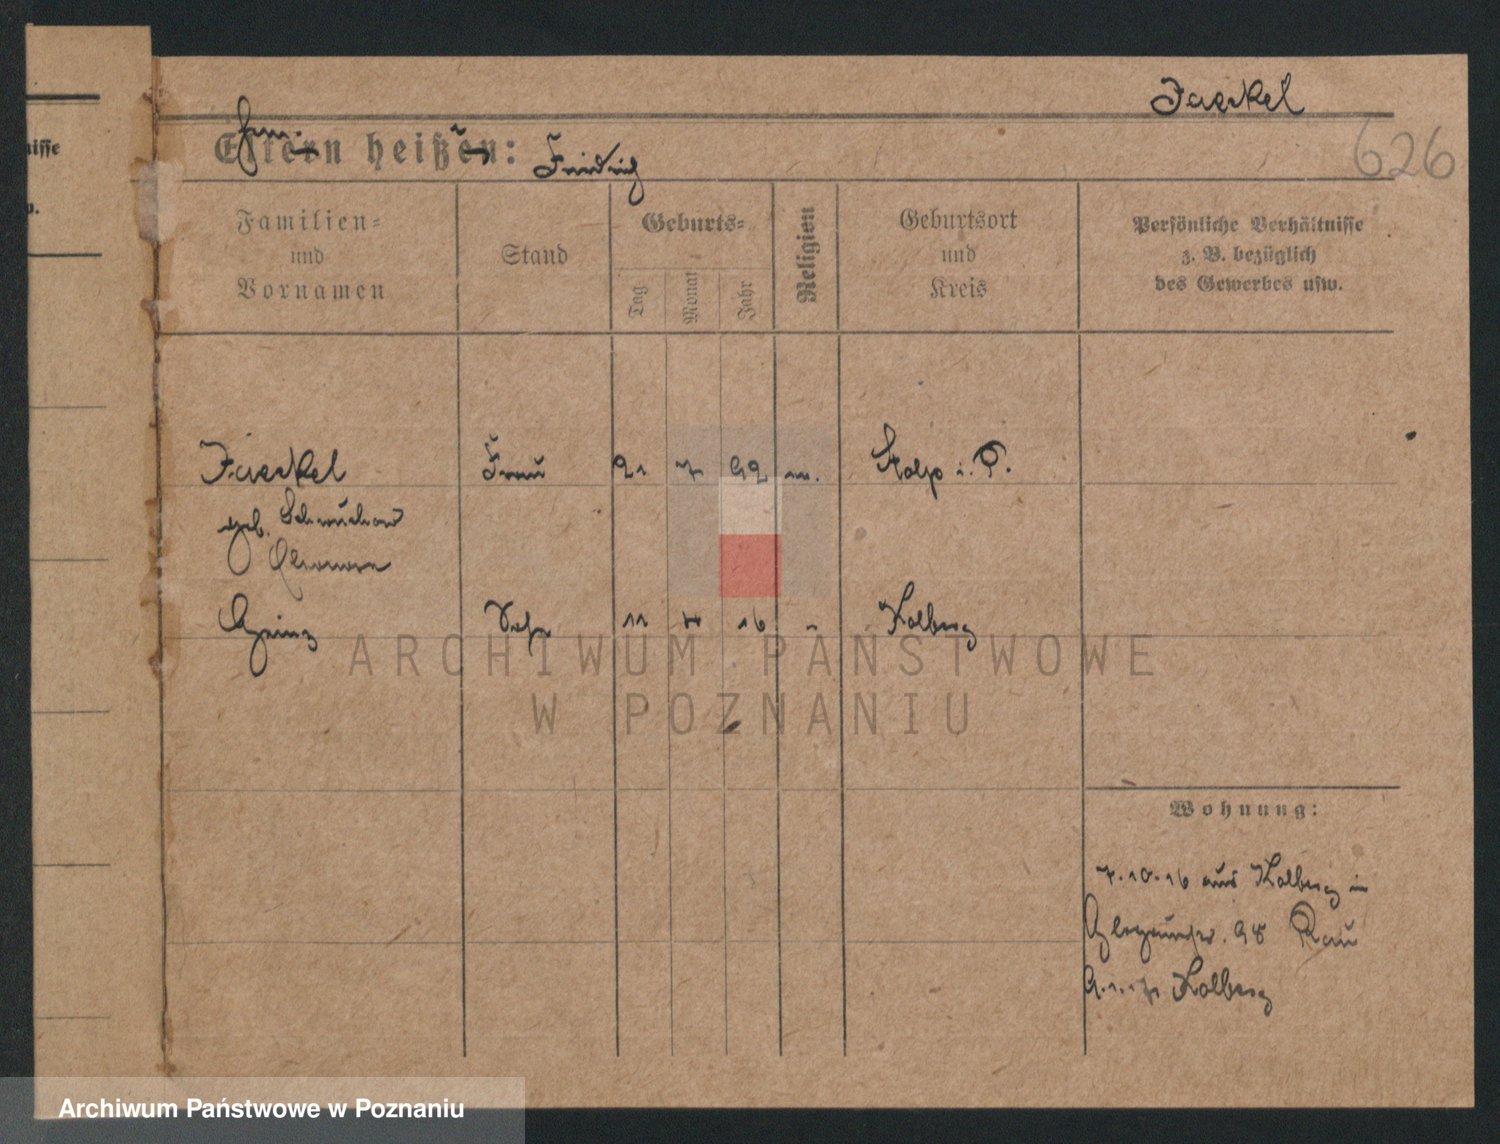 nisse
Jaeckel
626
Eltern heißen: Friedrich
Familien=
und
Vornamen
Stand
Geburts=
Tag
Monat
Jahr
Religion
Geburtsort
und
Kreis
Persönliche Verhältnisse
z. B. bezüglich
des Gewerbes usw.
Jaeckel Frau 21 7 92 Stolp i. P.
geb.
Heinz 11 16 Kolberg
ARCHIWUM PAŃSTWOWE
W POZNANIU
Wohnung:
7.10.16 aus Kolberg in
98 Rau
Kolberg
Archiwum Państwowe w Poznaniu